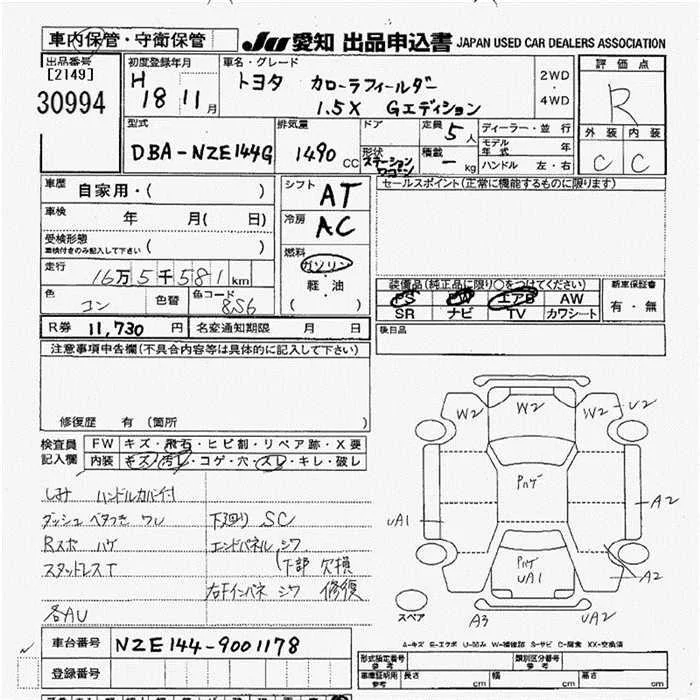 車内保管・守衛保管
JU 愛知 出品申込書 JAPAN USED CAR DEALERS ASSOCIATION
出品番号
[2149]
30994
初度登録年月
H
18 11 月
車名・グレード
トヨタ カローラフィールダー
1.5X Gエディション
2WD
・
4WD
評価点
R
外装 内装
C C
型式
DBA-NZE144G
排気量
1490 CC
ドア
形状
ステーション
ワゴン
定員 5 人
積載 - kg
ディーラー・並行
モデル
年式 年
ハンドル 左・右
車歴
自家用・( )
車検 年 月( 日)
受検形態
車検付きのみ記入して下さい ( )
走行
16万5千581 km
色
コン
色替
色コード
8S6
シフト AT
冷房 AC
燃料
ガソリン
・
軽・油
( )
セールスポイント(正常に機能するものに限ります)
装備品(純正品に限り○をつけてください)
PS PW エアB AW
SR ナビ TV カワシート
新車保証書
有・無
後日品
R券 11,730 円 名変通知期限 月 日
注意事項申告欄(不具合内容等は具体的に記入して下さい)
修復歴 有 (箇所 )
検査員
記入欄
FW キズ・飛石・ヒビ割・リペア跡・X要
内装 キズ・汚レ・コゲ・穴・スレ・キレ・破レ
しみ ハンドルカバー付
ダッシュ ベタつき ワレ
Rスポ ハゲ
スタッドレスT
各AU
下廻り SC
エンドパネル シワ
(下部 欠損
右Fインパネ シワ 修復
W2 W2 W2 U2
ハゲ
UA1 A2
ハゲ
UA1
A2
スペア
A3 UA2
A-キズ E-エクボ U-凹み W-補修跡 S-サビ C-腐食 XX-交換済
車台番号 NZE144-9001178
登録番号
形式指定番号
参考
類別区分番号
参考
車庫証明用
参考
長さ cm 幅 cm 高さ cm